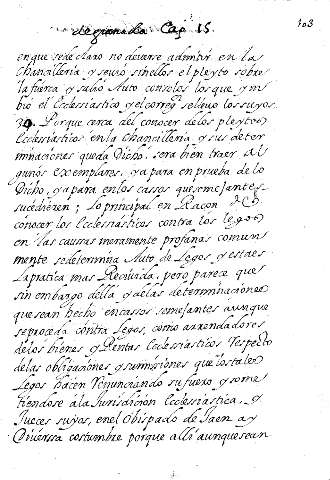 Segunda Cap. 15. 103
en que se declaro no deverse admitir en las
Chancilleria y se vio sin ellos el pleyto sobre
la fuerca y salio Auto con solos los que ym
bio el Ecclesiastico, y el correg.r se llevo los suyos.
Porque cerca del conocer de los pleytos
Ecclesiasticos en la chancilleria, y sus deter
minaciones queda Dicho, sera bien traer Al
gunos exemplares, ya para en prueba de lo
Dicho, ya para en los casos que semejantes
sucedieren; lo principal en Raçon de
conocer los Ecclesiásticos contra los legos
en las causas meramente profanas comun
mente se determina Auto de Legos, y esta es
la pratica mas Recivida, pero parece que
sin embargo della y de las determinaciónes
que se an hecho en cassos semejantes aunque
se proceda contra Legos, como arrendadores
de los biénes, y Rentas Ecclesiásticos Respecto
de las obligaciones y sumissiones que los tales
Legos hacen Renunciando su fuero y some
tiendose â la Jurisdicion Ecclesiastica, y
Jueces suyos, en el Obispado de Jaen ay
Diverssa costumbre porque alli aunque sean